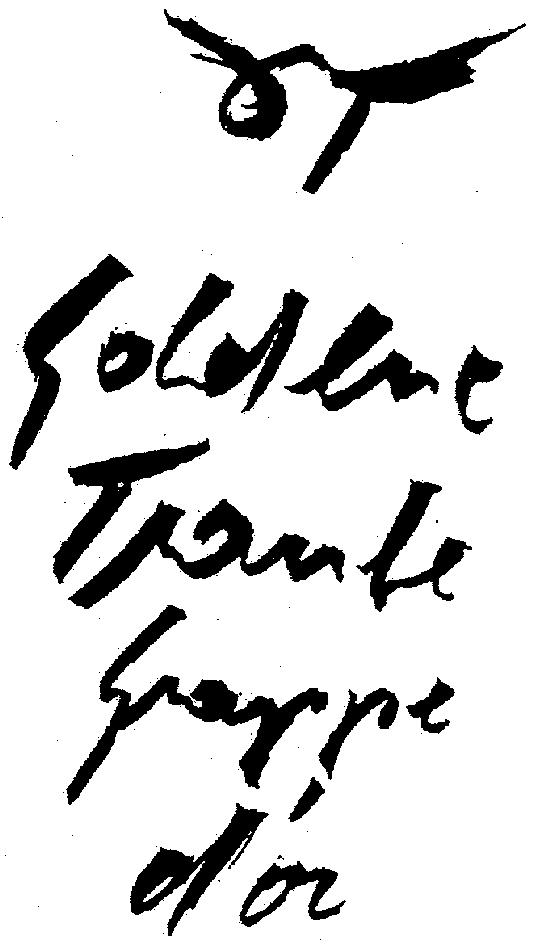 Goldene
Traube
Grappe
d'or